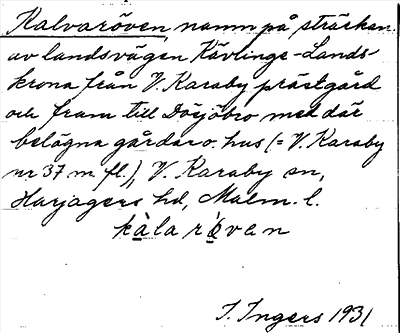 Kalvaröven namn på sträckan
av landsvägen Kävlinge-Lands-
krona från V. Karaby prästgård
och fram till Dösjöbro med där
belägna gårdar o. hus (= V. Karaby
nr 37 m fl.), V. Karaby sn,
Harjagers hd, Malm. l.
kàlarö́ven
I. Ingers 1931